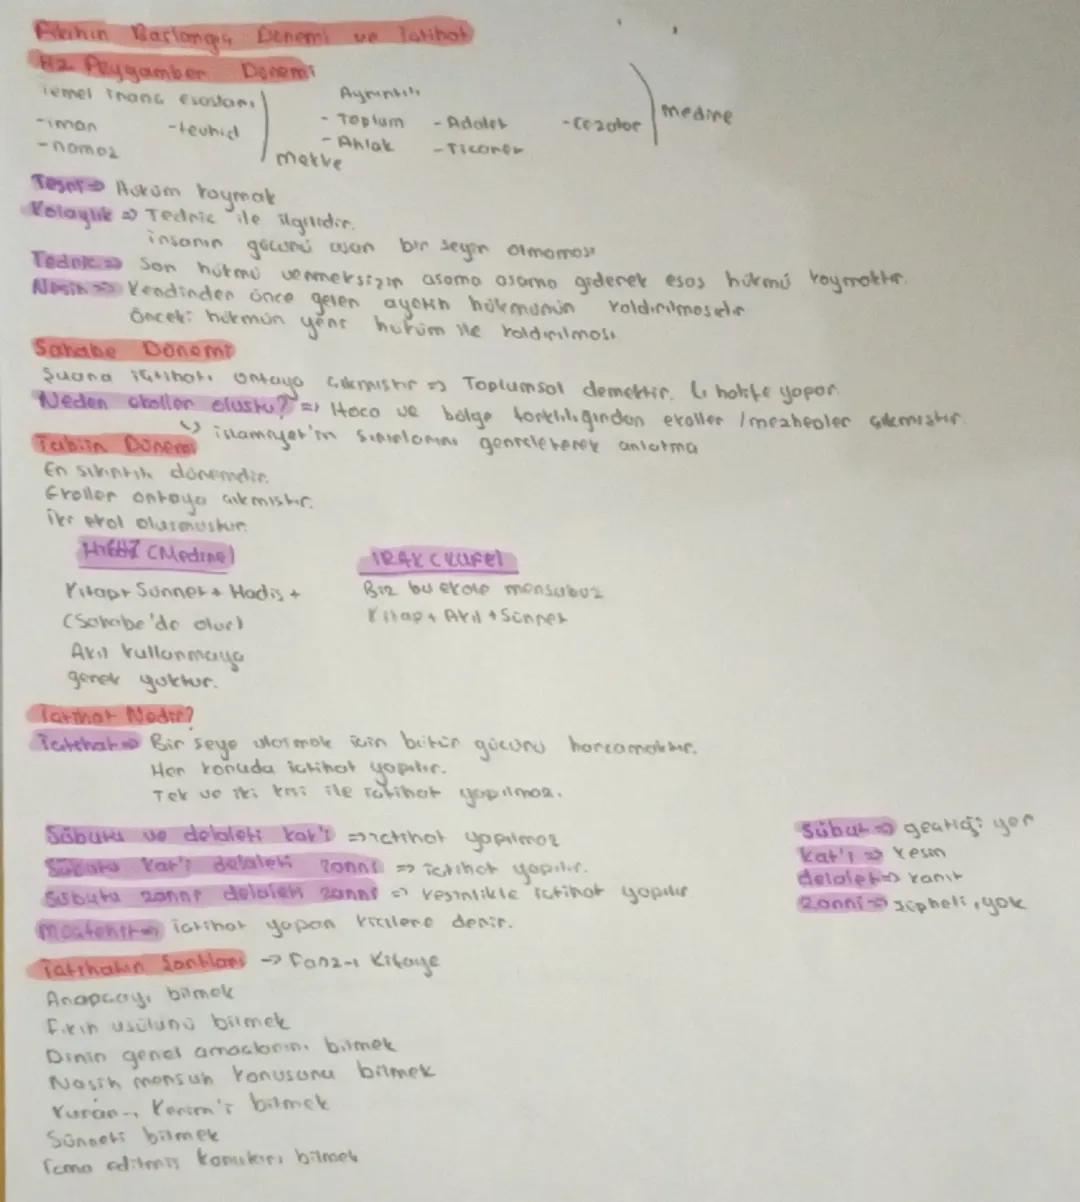 Fıkhın Başlangıç Dönemi ve İctihat
Hz. Peygamber Dönemi
Temel inanç esasları
-iman -tevhid
-namaz
Mekke
Ayrıntılı
- Toplum - Adalet - Cezalar
- Ahlak - Ticaret
medine
Teşri => Hüküm koymak
Kolaylık => Tedric ile ilgilidir.
insanın gücünü aşan bir şeyin olmaması
Tedric => Son hükmü vermeksizin aşama aşama giderek esas hükmü koymaktır.
Nesih => Kendinden önce gelen ayetin hükmünün kaldırılmasıdır
Önceki hükmün yeni hüküm ile kaldırılması
Sahabe Dönemi
Şuara ictihatı ortaya çıkmıştır => Toplumsal demektir. halife yapar.
Neden ekoller oluştu? => Hoca ve bölge farklılığından ekoller / mezhepler çıkmıştır.
↳ islamiyet'in sınırlarını genişleterek anlatma
Tabiin Dönemi
En sıkıntılı dönemdir.
Ekoller ortaya çıkmıştır.
İki ekol oluşmuştur.
(Medine)
Kitap+ Sünnet + Hadis +
(Sahabe'de olur)
Akıl kullanmaya
gerek yoktur.
IRAK (KUFE)
Biz bu ekole mensubuz
Kitap + Akıl + Sünnet
İctihat Nedir?
İctihat => Bir şeye ulaşmak için bütün gücünü harcamaktır.
Her konuda ictihat yapılır.
Tek ve iki kişi ile ictihat yapılmaz.
Sübutu ve delaleti kat'i => ictihat yapılmaz
Sübutu kat'i delaleti zanni => ictihat yapılır.
Sübutu zanni delaleti zanni => kesinlikle ictihat yapılır
Müctehit => ictihat yapan kişilere denir.
Sübut => geçtiği yer
Kat'i => kesin
delalet => kanıt
Zanni => şüpheli, yok
İctihatın Şartları -> Farz-ı Kifaye
Arapçayı bilmek
Fıkıh usülünü bilmek
Dinin genel amaçlarını bilmek
Nasih mensuh konusunu bilmek
Kuran-ı Kerim'i bilmek
Sünneti bilmek
İcma edilmiş konuları bilmek